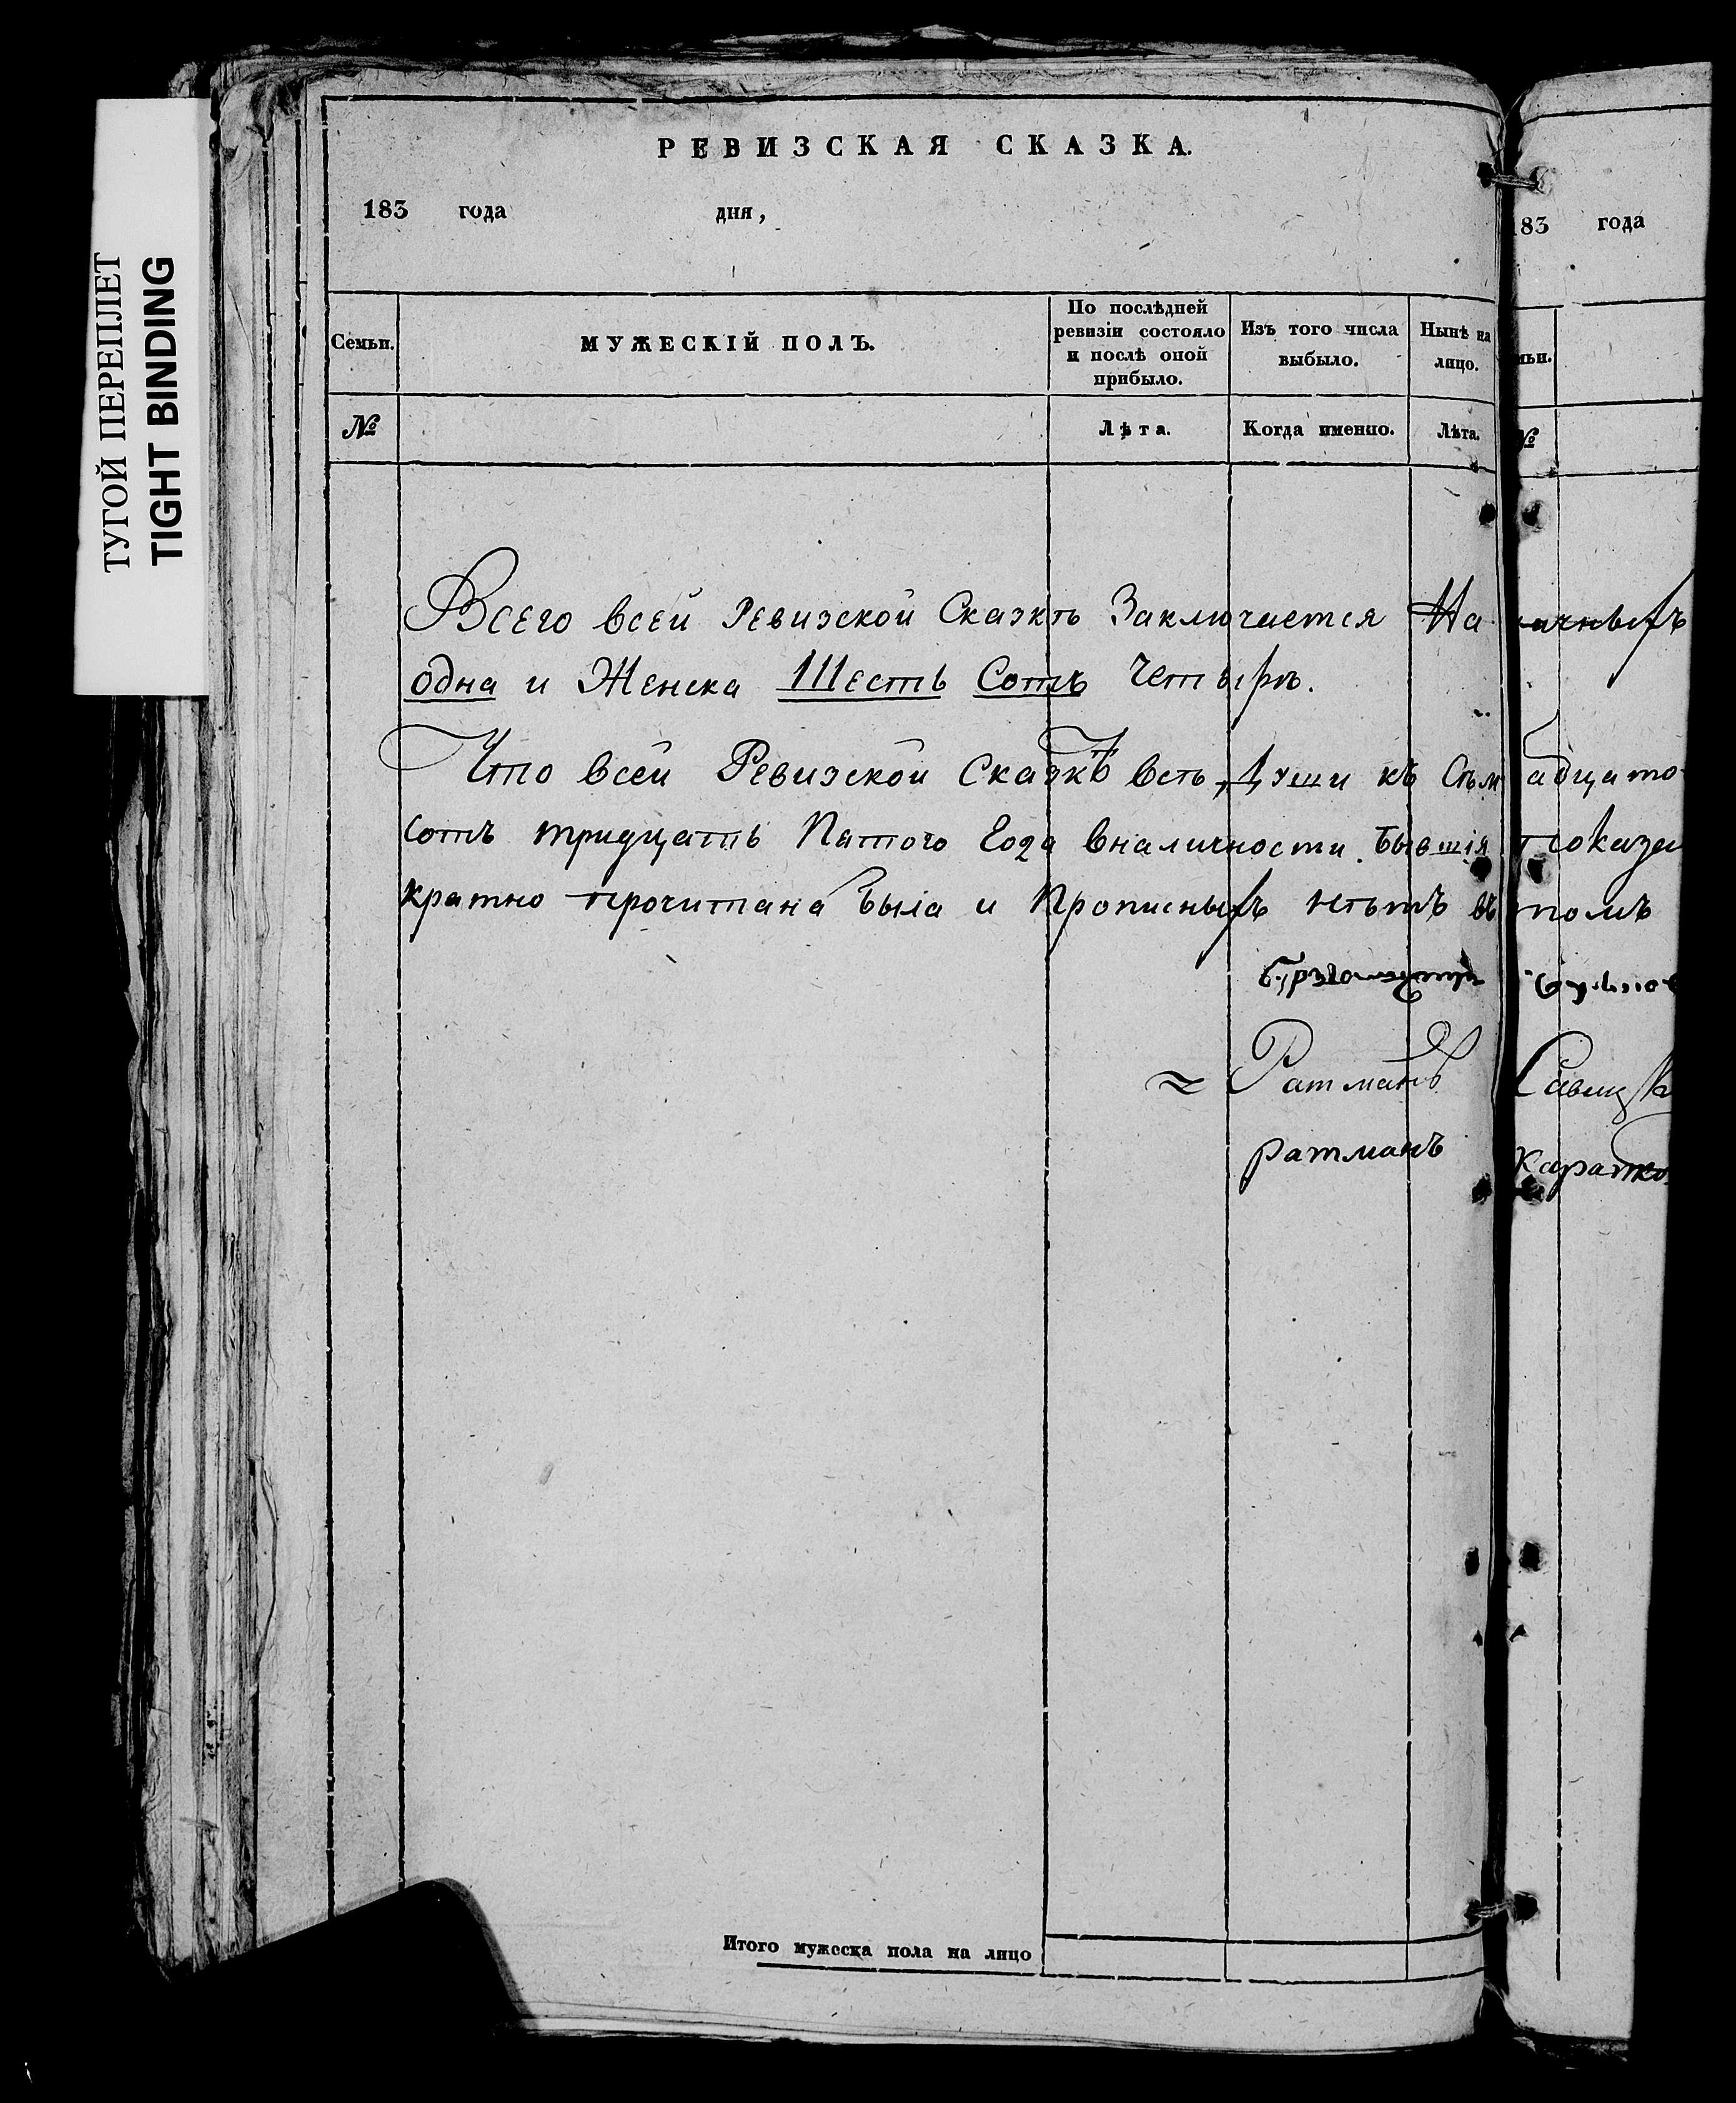 ТУГОЙ ПЕРЕПЛЕТ
TIGHT BINDING
РЕВИЗСКАЯ СКАЗКА.
183 года дня,
Семьи.
МУЖЕСКІЙ ПОЛЪ.
По послѣдней
ревизіи состояло
и послѣ оной
прибыло.
Изъ того числа
выбыло.
Нынѣ на
лицо.
№
Лѣта.
Когда именно.
Лѣта.
Всего всей Ревизской Сказкѣ Заключается На
одна и Женска Шесть Сотъ Четырѣ.
Что всей Ревизской Сказкѣ всѣ Души къ
сотъ тридцать Пятого Года вналичности бывшія
кратно прочитана была и Прописныхъ нѣтъ въ
Ратманъ
ратманъ
Итого мужеска пола на лицо
83 года
мьи.
№
личныхъ
адцато
показа
томъ
Савицк
Каратко